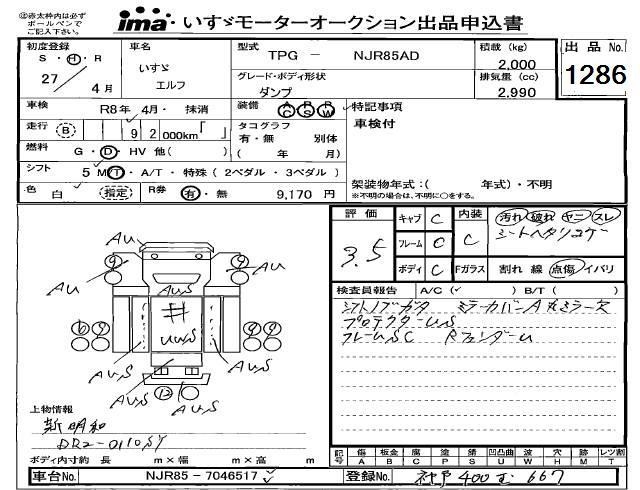 ㊟赤太枠内は必ず
ボールペンで
ご記入下さい。
ima いすゞモーターオークション出品申込書
初度登録 S・H・R 27 4月
車名 いすゞ エルフ
型式 TPG － NJR85AD
積載 (kg) 2,000
出品 No. 1286
グレード・ボディ形状 ダンプ
排気量 (cc) 2,990
車検 R8年 4月・ 抹消
装備 AC PS PW
特記事項
車検付
走行 (B) 9 2 000km「 」
タコグラフ 有・無 別体
( 年 月)
燃料 G・D・HV 他( )
シフト 5 M/T・A/T・特殊(2ペダル・3ペダル)
架装物年式:( 年式)・不明
※不明の場合は、不明に○をする。
色 白 (指定) R券 有・無 9,170 円
評価 3.5
キャブ C 内装 C 汚れ 破れ ヤニ スレ
フレーム C シートヘタリコゲ
ボディ C Fガラス 割れ 線 点傷 イバリ
検査員報告 A/C(✓ ) B/T( )
シフトノブガタ ミラーカバーA
プロテクターUS
フレームSC RフェンダーU
AU
AU
AU
AU
9
9
# UWS
6 9
9 9
AUS
AUS
AUS
12
AUS
上物情報
新明和
DR2-0110SY
ボディ内寸約 長 m×幅 m×高 m
記号 傷A 板金B 腐C 塗P 錆S 凹凸曲U 波W 穴H 跡M レツ割T
車台No. NJR85－7046517 ✓
登録No. 400 667